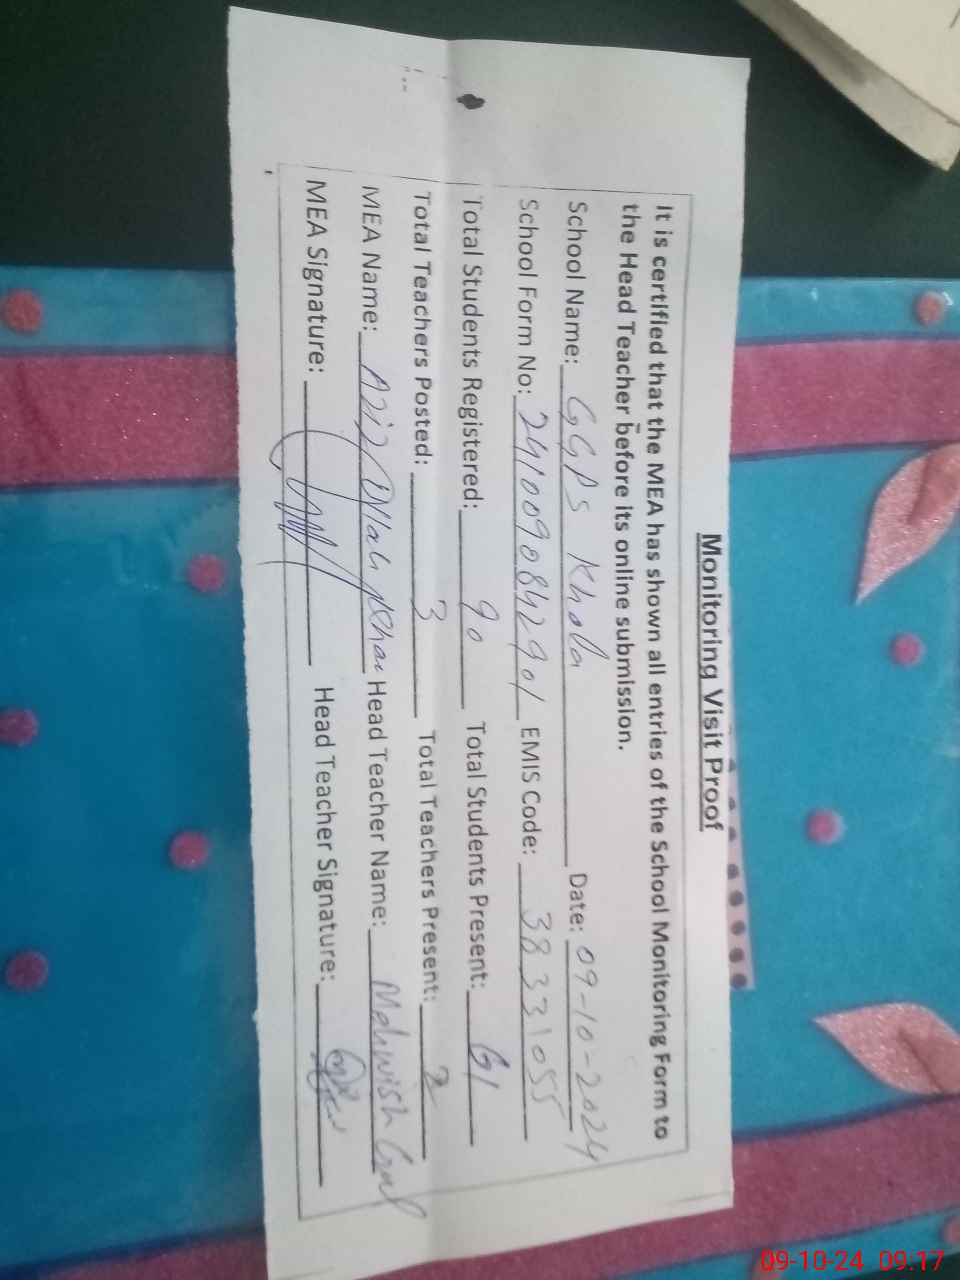 Monitoring Visit Proof
It is certified that the MEA has shown all entries of the School Monitoring Form to
the Head Teacher before its online submission.
School Name: GGPS Khola Date: 09-10-2024
School Form No: 2410090842901 EMIS Code: 38331055
Total Students Registered: 90 Total Students Present: 61
Total Teachers Posted: 3 Total Teachers Present: 2
MEA Name: Aziz Ullah Khan Head Teacher Name: Mahwish Gul
MEA Signature: Head Teacher Signature:
09-10-24 09:17